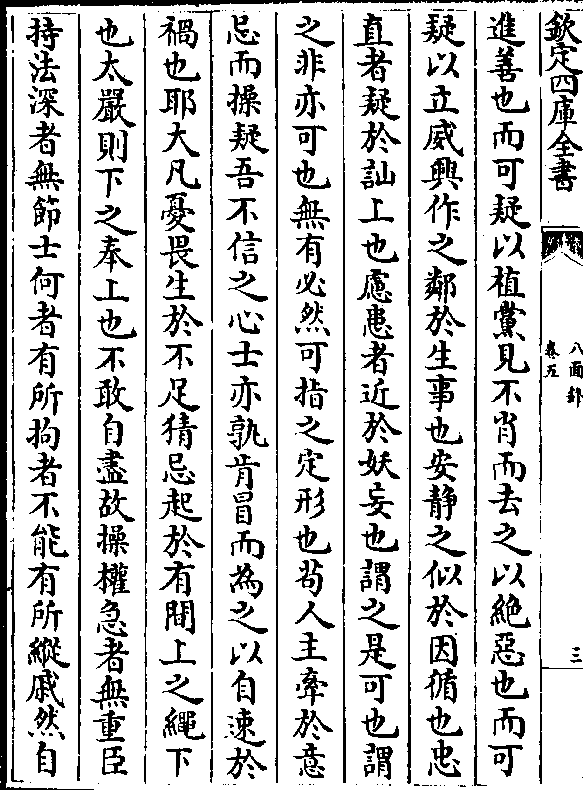 欽定四庫全書
八面鋒
卷五
三
進善也而可疑以植黨見不肖而去之以絶惡也而可
疑以立威興作之鄰於生事也安靜之似於因循也忠
直者疑於訕上也慮患者近於妖妄也謂之是可也謂
之非亦可也無有必然可指之定形也苟人主牽於意
忌而操疑吾不信之心士亦孰肯冒而為之以自速於
禍也耶大凡憂畏生於不足猜忌起於有間上之繩下
也太嚴則下之奉上也不敢自盡故操權急者無重臣
持法深者無節士何者有所拘者不能有所縱戚然自